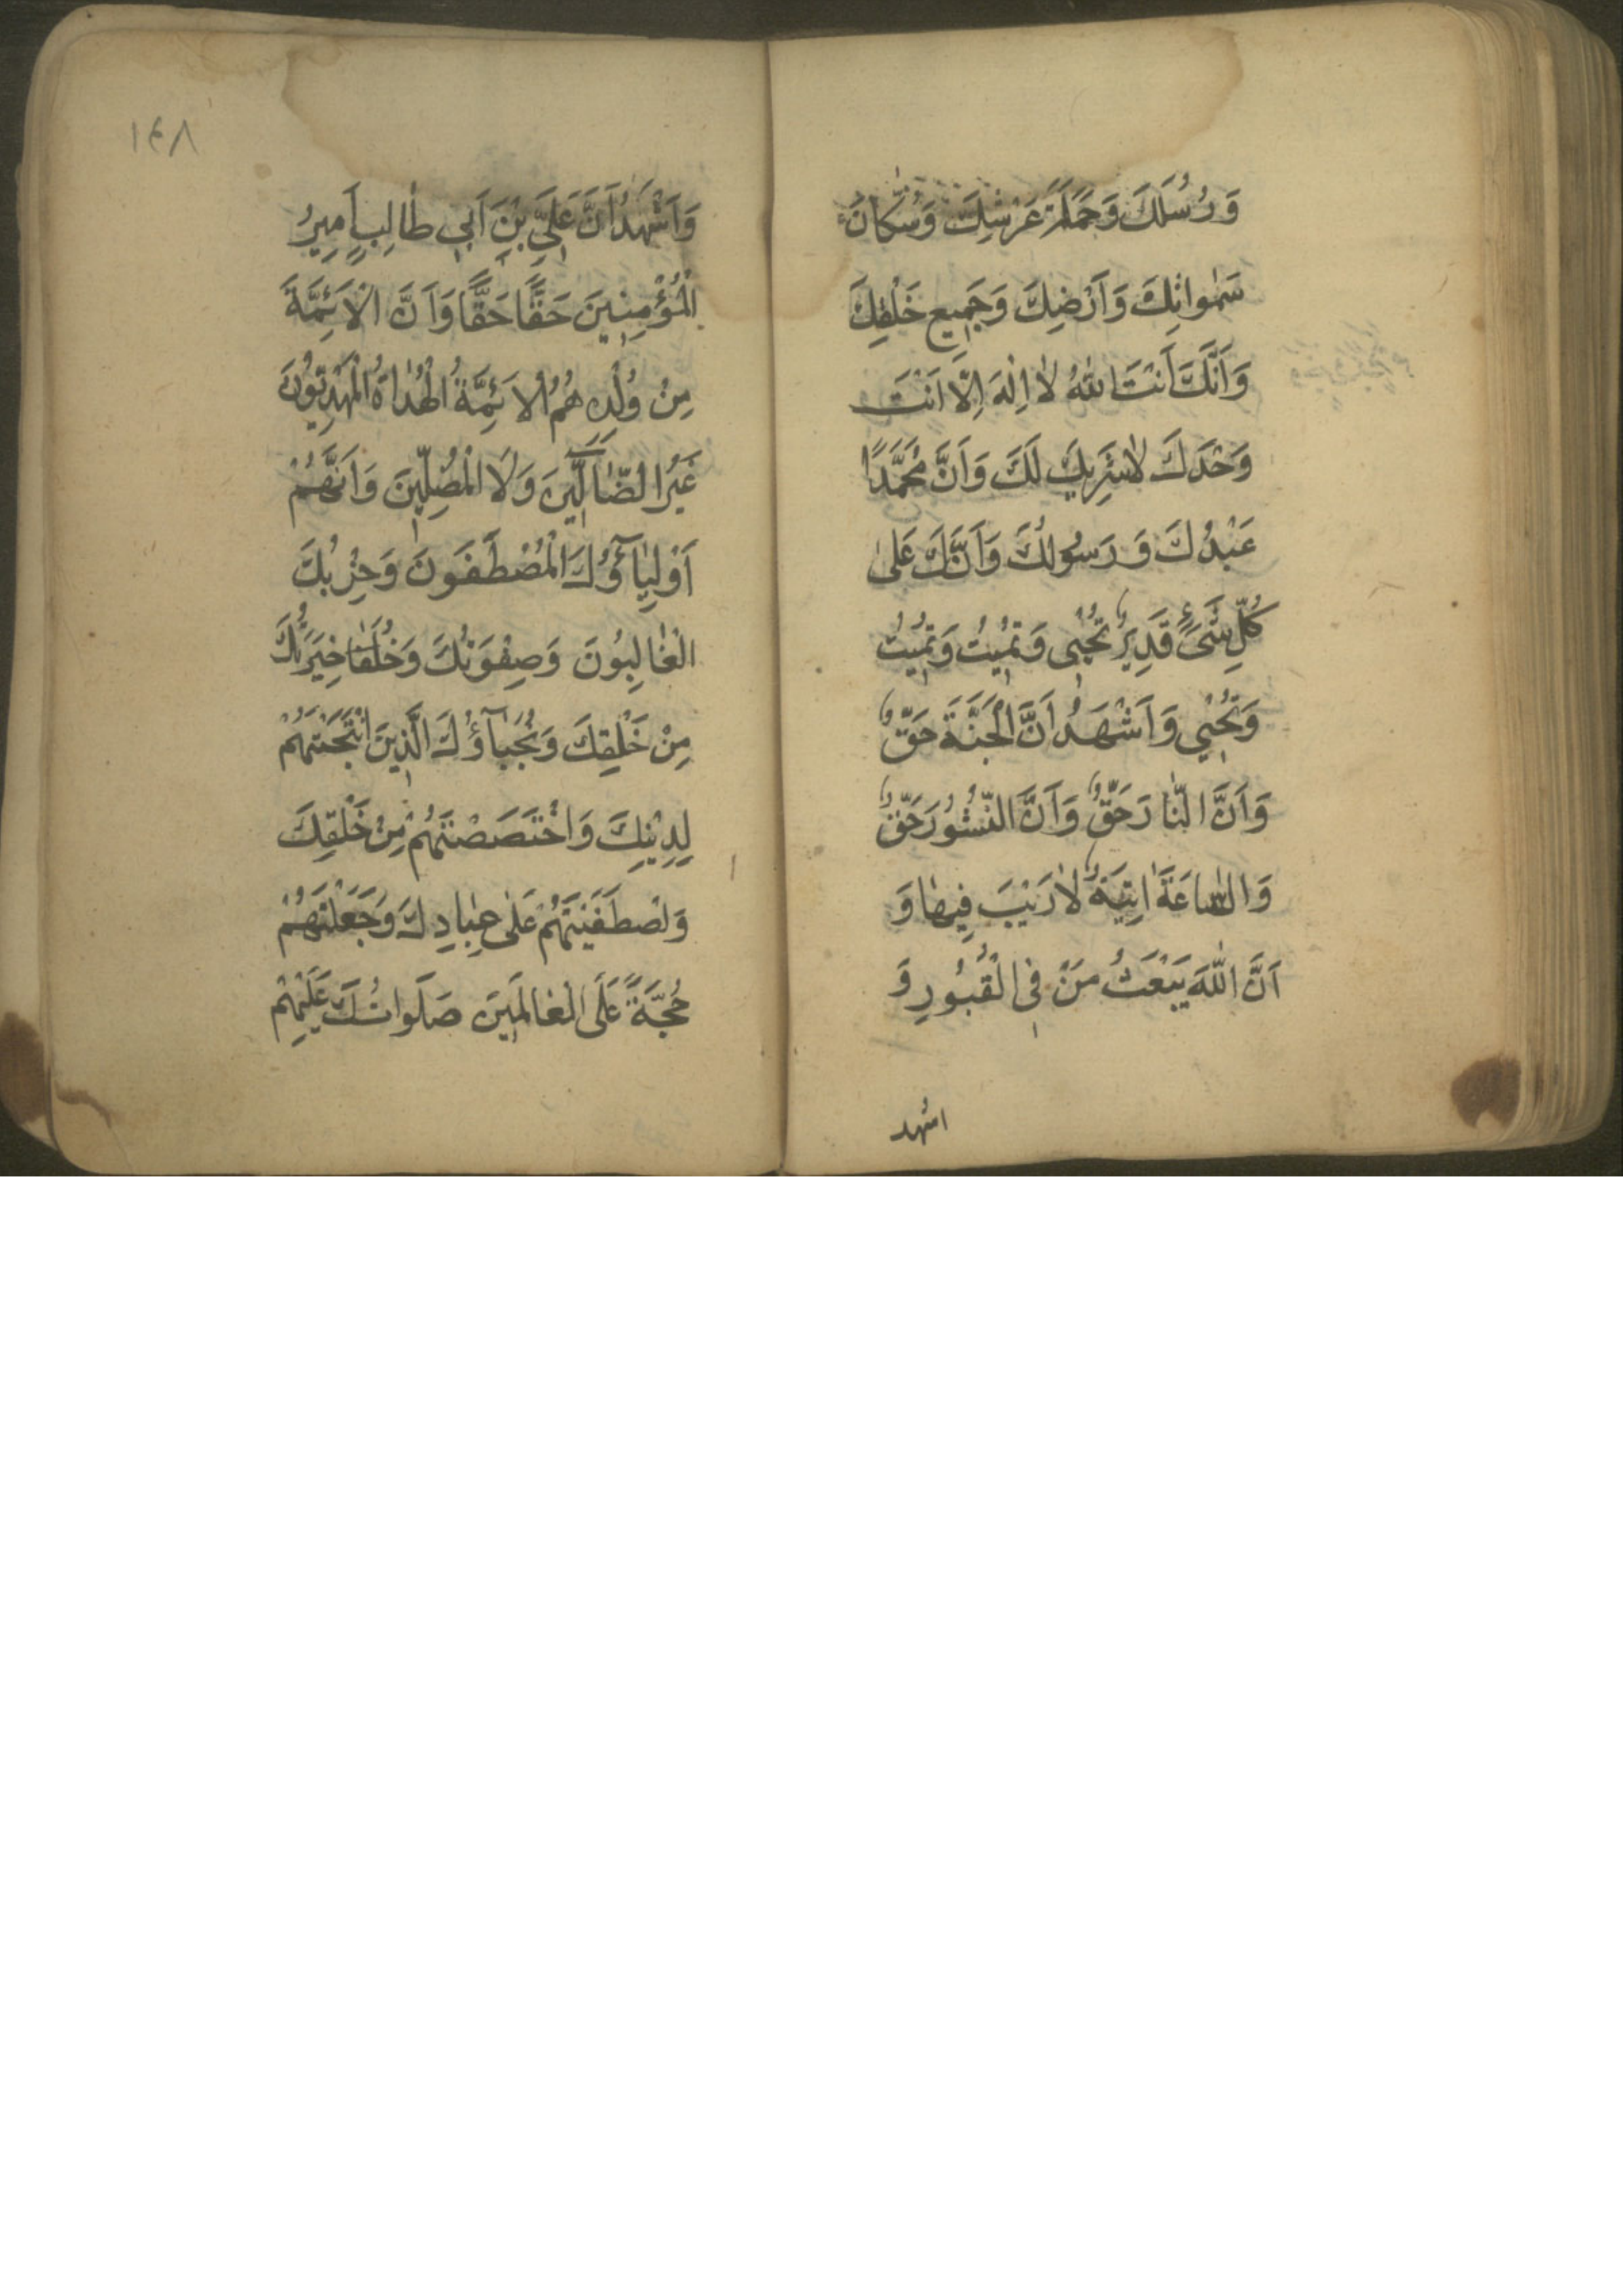 وَرُسُلَكَ وَحَمَلَةَ عَرْشِكَ وَسُكّانَ
سَمٰواتِكَ وَاَرْضِكَ وَجَمِيعِ خَلْقِكَ
وَاَنَّكَ اَنْتَ اللهُ لاٰ اِلٰهَ اِلَّا اَنْتَ
وَحْدَكَ لاٰشَرِيكَ لَكَ وَاَنَّ مُحَمَّدًا
عَبْدُكَ وَرَسُولُكَ وَاَنَّكَ عَلىٰ
كُلِّ شَىْءٍ قَدِيرٌ تُحْيِى وَتُمِيتُ وَتُمِيتُ
وَتُحْيِي وَاَشْهَدُ اَنَّ الْجَنَّةَ حَقٌّ
وَاَنَّ النّٰارَ حَقٌّ وَاَنَّ النُّشُورَ حَقٌّ
وَالسّٰاعَةَ اٰتِيَةٌ لاٰ رَيْبَ فِيهٰا وَ
اَنَّ اللّٰهَ يَبْعَثُ مَنْ فِى الْقُبُورِ وَ
اشهد
١٤٨
وَاَشْهَدُ اَنَّ عَلِيَّ بْنَ اَبِى طٰالِبٍ اَمِيرُ
الْمُؤْمِنِينَ حَقًّا حَقًّا وَاَنَّ الْاَئِمَّةَ
مِنْ وُلْدِهِ هُمُ الْاَئِمَّةُ الْهُدٰاةُ الْمَهْدِيُّونَ
غَيْرُ الضّٰالّٖينَ وَلَا الْمُضِلّٖينَ وَاَنَّهُمْ
اَوْلِيٰآؤُكَ الْمُصْطَفَوْنَ وَحِزْبُكَ
الْغٰالِبُونَ وَصِفْوَتُكَ وَخُلَفٰا خِيَرَتُكَ
مِنْ خَلْقِكَ وَنُجَبٰآؤُكَ الَّذِينَ انْتَجَبْتَهُمْ
لِدِيْنِكَ وَاخْتَصَصْتَهُمْ مِنْ خَلْقِكَ
وَاصْطَفَيْتَهُمْ عَلٰى عِبٰادِكَ وَجَعَلْتَهُمْ
حُجَّةً عَلَى الْعٰالَمِينَ صَلَوٰاتُكَ عَلَيْهِمْ